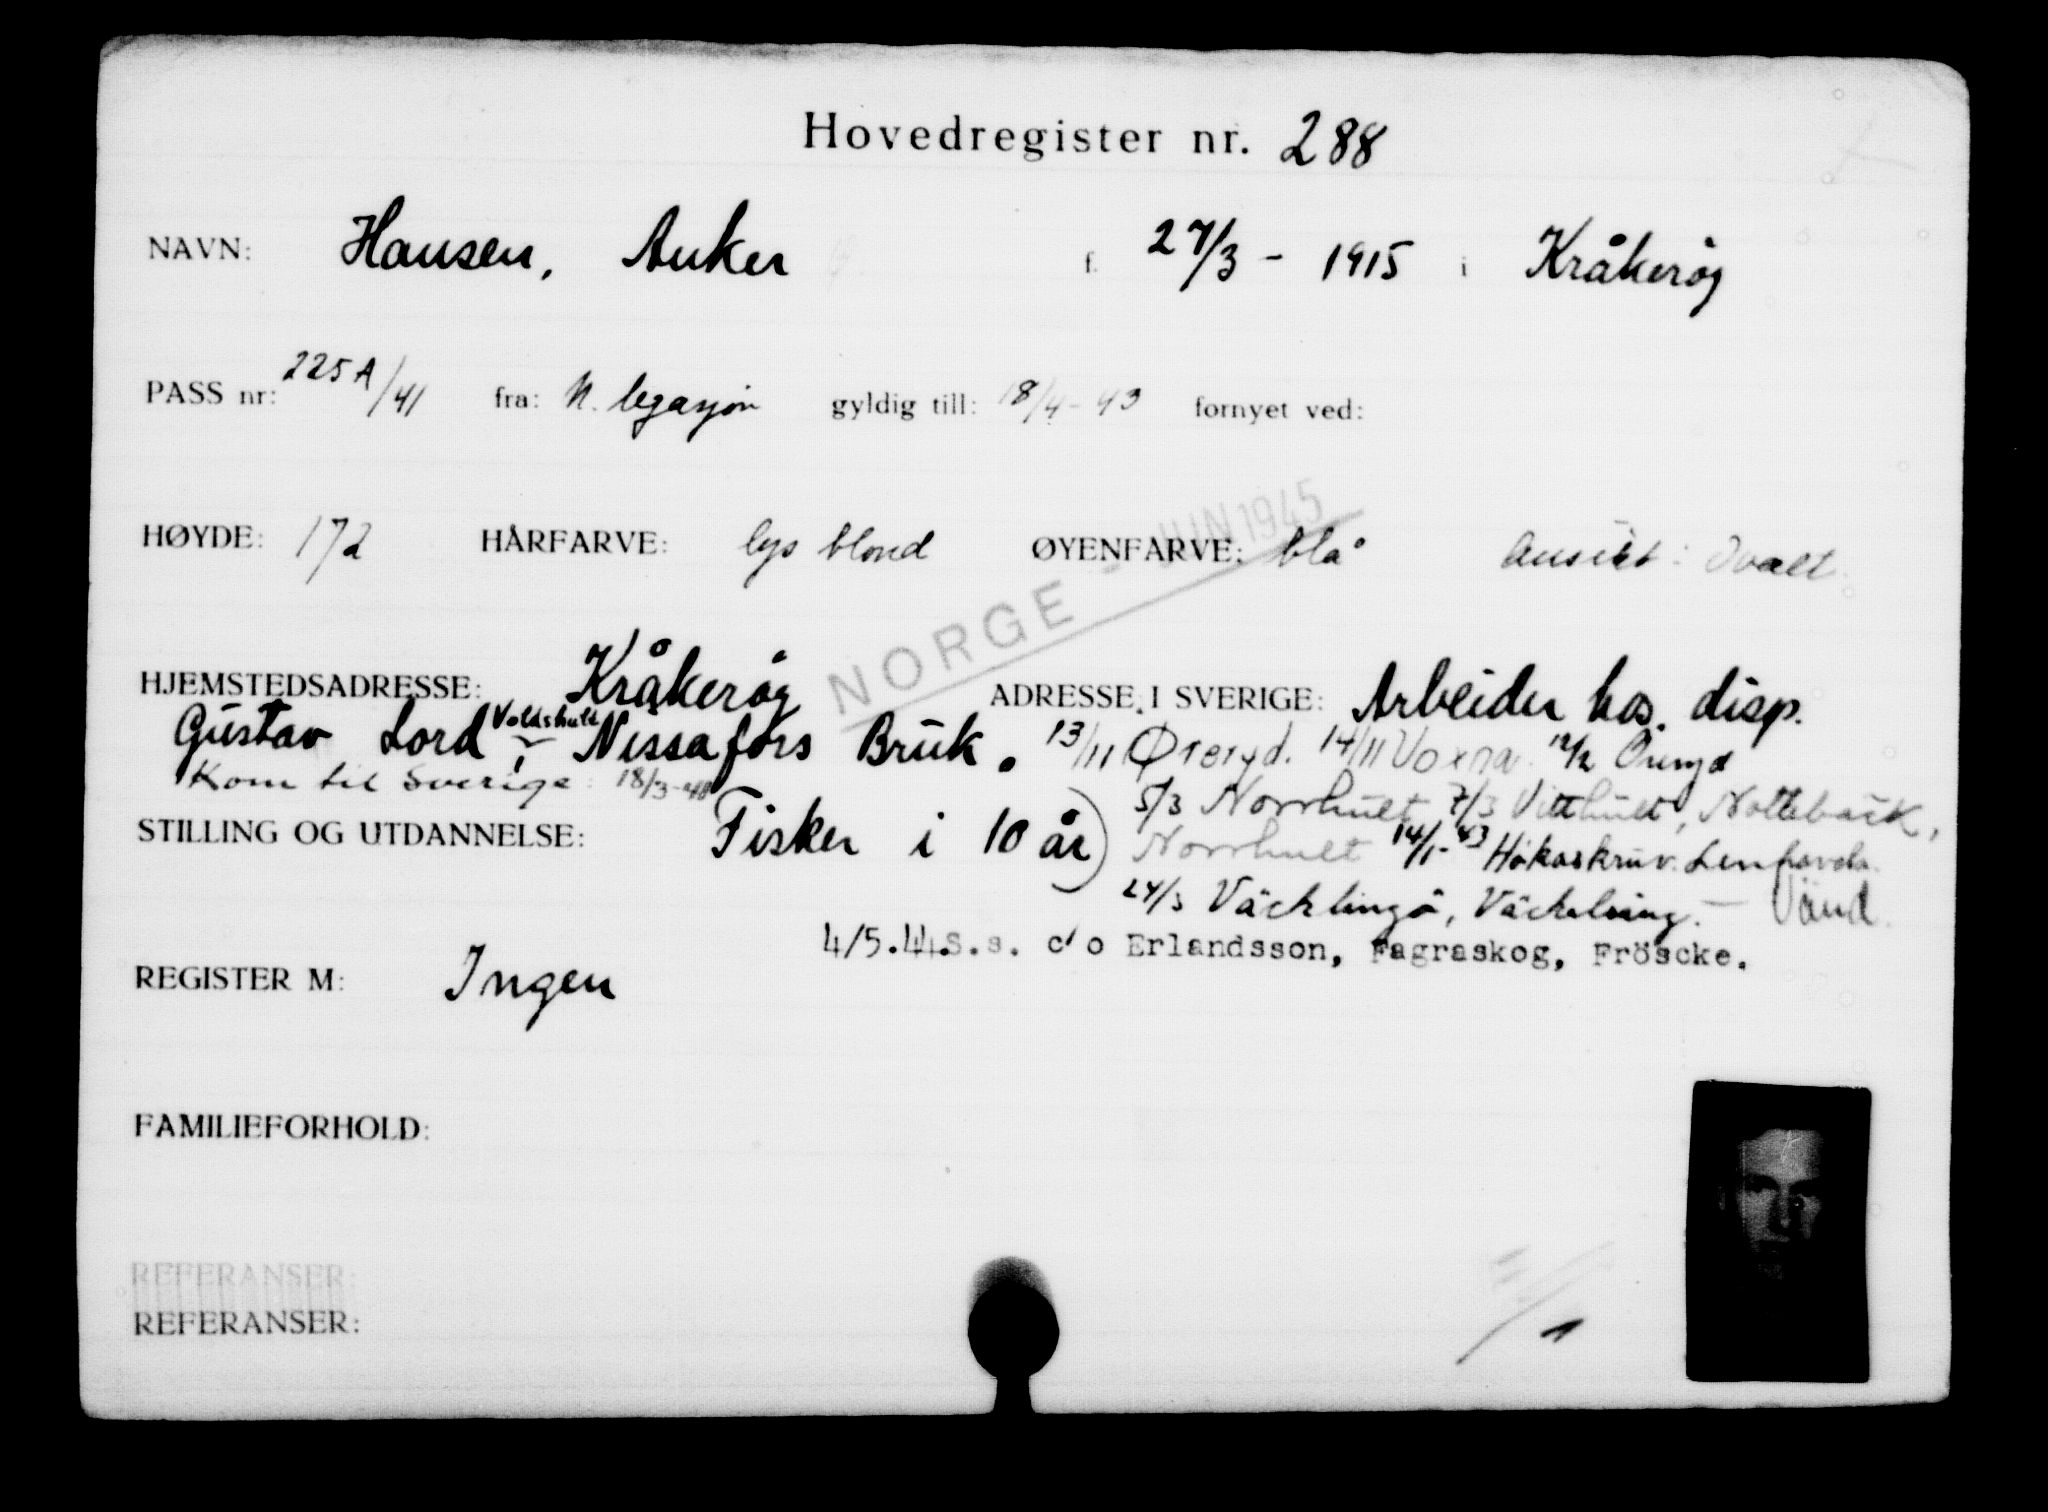 Hovedregister nr. 288
NAVN: Hansen, Anker f. 27/3 - 1915 i Kråkerøy
PASS nr: 225A/41 fra: N. legasjon gyldig till: 18/4-43 fornyet ved:
HØYDE: 172 HÅRFARVE: lys blond ØYENFARVE: blå Ansikt: Ovalt
NORGE - JUN 1945
HJEMSTEDSADRESSE: Kråkerøy ADRESSE I SVERIGE: Arbeider hos disp.
Gustav Lord, Voldshult Nissafors Bruk. 13/11 Øreryd. 14/11 Voxna. Öreryd
Kom til Sverige: 18/3-40
5/3 Norrhult 7/3 Vitthult, Nottebäck,
STILLING OG UTDANNELSE: Fisker i 10 år) Norrhult 14/1-43 Håkaskruv. Lenhovda.
24/3 Väcklingö, Väckelsäng. - Vänd.
4/5.44.s.s. c/o Erlandsson, Fagraskog, Fröscke.
REGISTER M: Ingen
FAMILIEFORHOLD:
REFERANSER:
REFERANSER: